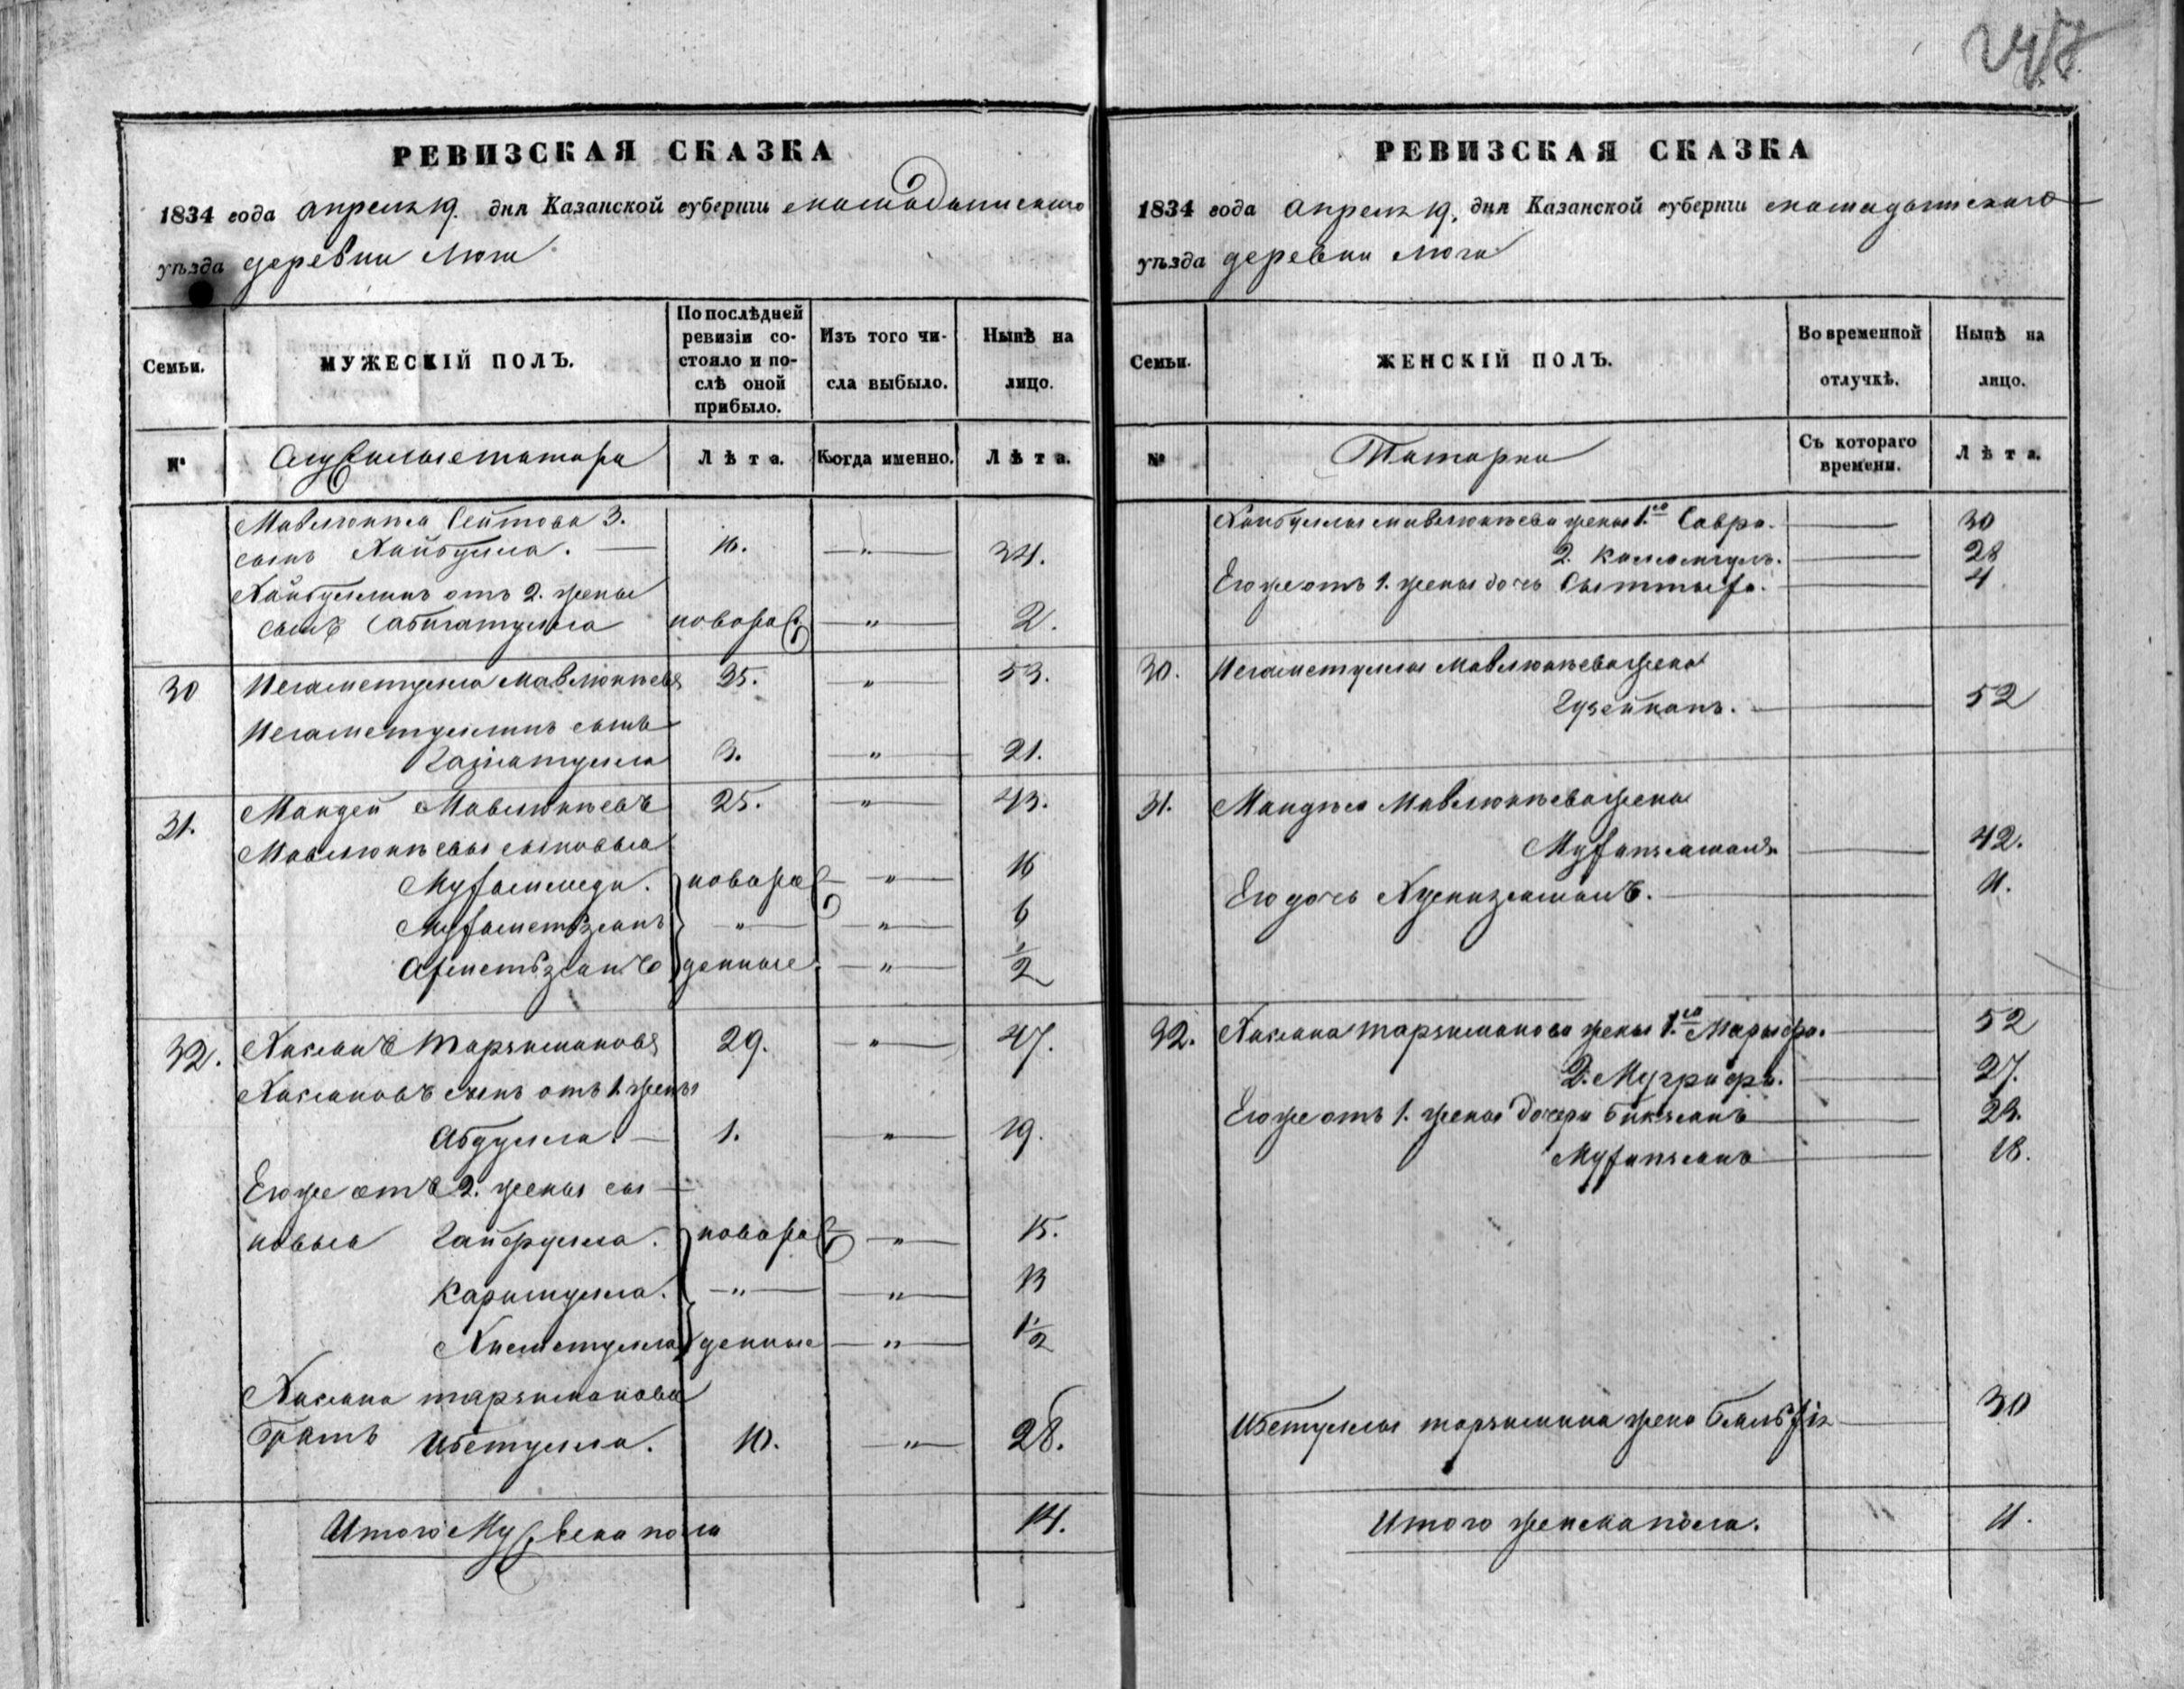 РЕВИЗСКАЯ СКАЗКА
1834 года апреля 19. дня Казанской губернии мамадышскаго
уѣзда деревни Люги
Семьи.
МУЖЕСКІЙ ПОЛЪ.
По послѣдней ревизіи состояло и послѣ оной прибыло.
Изъ того числа выбыло.
Нынѣ на лицо.
№
Служилые татара
Лѣта.
Когда именно.
Лѣта.
Мавлюкѣя Сеитова 3.
сынъ Хайбулла. — 16. — " — 34.
Хайбуллинъ отъ 2. жены
сынъ Сабигатулла новорож — " — 2.
30 Негаметулла Мавлюкѣевъ 35. — " — 53.
Негаметуллинъ сынъ
3. — " — 21.
31. Мандей Мавлюкѣевъ 25. — " — 43.
Мавлюкѣевы сыновья
новорож — " — 16
Мухаметзянъ — " — — " — 6
Ахметзянъ денные. — " — 1/2
32. Хасанъ Тарзимановъ 29. — " — 47.
Хасановъ сынъ отъ 1. жены
Абдулла. — 1. — " — 19.
Его же отъ 2. жены сы-
новья новорож — " — 15.
Каримулла. — " — — " — 13
Хисметулла денные — " — 1 1/2
Хасана тарзиманова
братъ Ибетулла. 10. — " — 28.
Итого Мужеска пола 14.
РЕВИЗСКАЯ СКАЗКА
1834 года Апреля 19. дня Казанской губерніи мамадышскаго
уѣзда деревни Люги
Семьи.
ЖЕНСКІЙ ПОЛЪ.
Во временной отлучкѣ.
Нынѣ на лицо.
№
Татарки
Съ котораго времени.
Лѣта.
Хайбуллы мавлюкѣева жены 1.ая Савра. — 30
2. — 28
Его же отъ 1. жены дочь — 4
30. Негаметуллы Мавлюкѣева жена
— 52
31. Мандѣя Мавлюкѣева жена
— 42.
Его дочь — 11.
32. Хасана тарзиманова жены 1.ая — 52
2. — 27.
Его же отъ 1. жены дочери — 23.
— 18.
Ибетуллы жена — 30
Итого женска пола. 11.